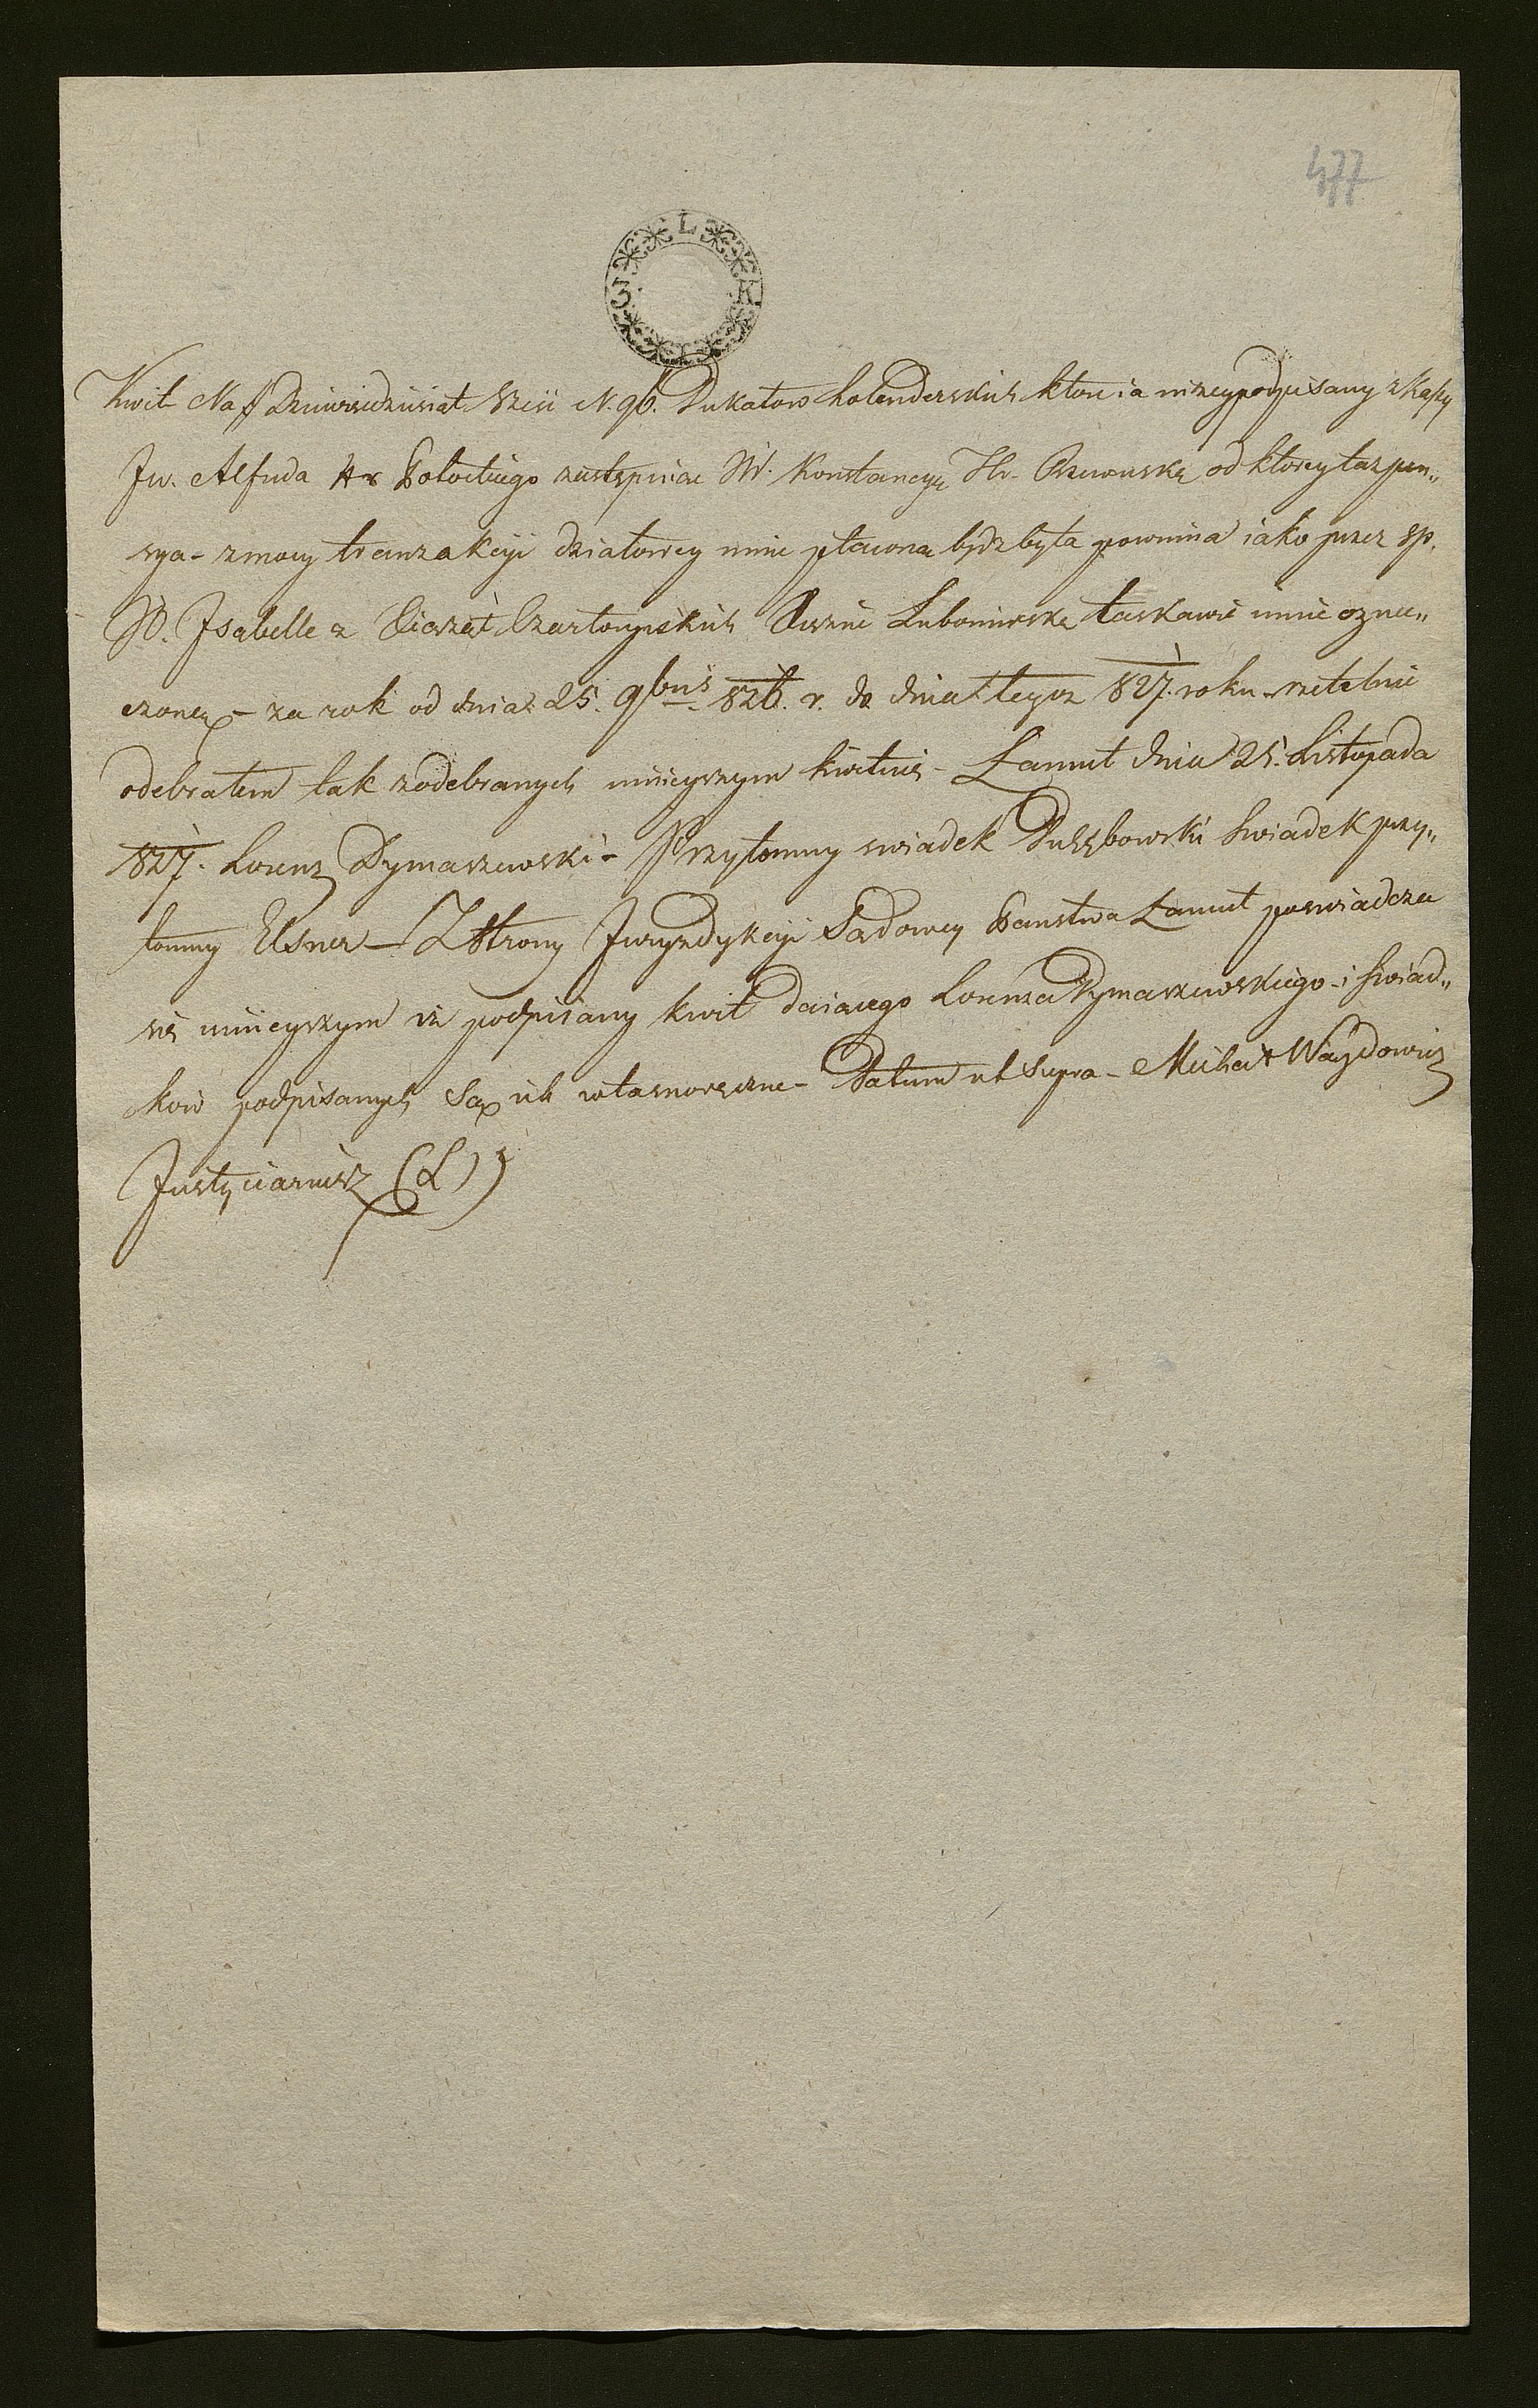 477
L
3. K.
Kwit Na # Dziewiedziesiąt Szesc N. 96. Dukatow holenderskich ktore ia nizeypodpisany z Kassy
Jw. Alfreda Hr Potockiego zastępuiąc JW. Konstancyę Hr. Rzewuskę od ktorey taz pen„
sya – z mocy tranzakcyi działowey mnie płacona bydz była powinna iako przez sp.
JO. Jsabelle z Xiąząt Czartoryiskich Xiezne Lubomirskę łaskawie mnie ozna„
czoną – za rok od dnia 25. 9bris 826. r. do dnia tegoz 827. roku rzetelnie
odebrałem tak z odebranych ninieyszym kwituię – Łancut dnia 25. Listopada
827. Lorenz Dymaszewski – Przytomny swiadek swiadek przy„
tomny Elsner – Z Strony Juryzdykcyi Sądowey Panstwa Łancut poswiadcza
się ninieyszym iz podpisany kwit daiącego Lorenza Dymaszewskiego – i swiad„
kow podpisanych Są ich własnoręczne – Datum ut Supra – Michał Waydowicz
Justyciariusz (L)